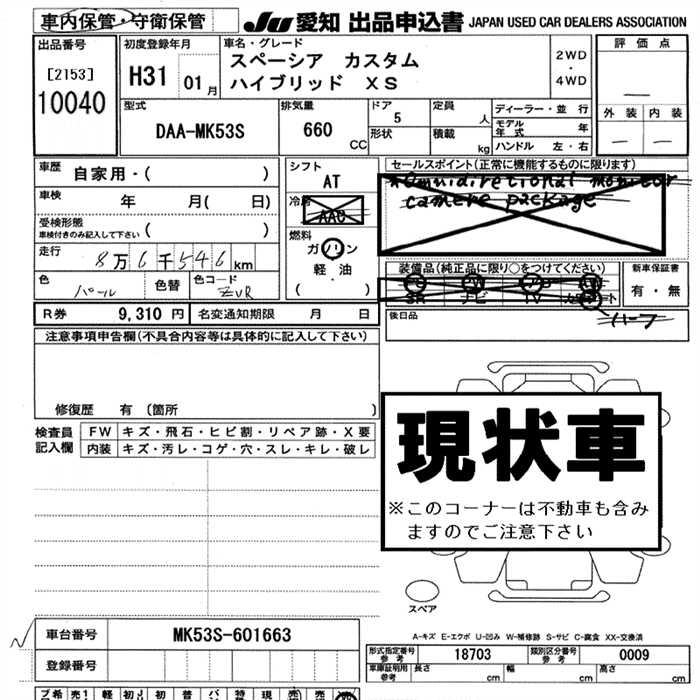 車内保管・守衛保管
JU 愛知 出品申込書 JAPAN USED CAR DEALERS ASSOCIATION
出品番号
[2153]
10040
初度登録年月
H31 01月
車名・グレード
スペーシア カスタム
ハイブリッド XS
2WD
・
4WD
評価点
外装 内装
型式
DAA-MK53S
排気量
660 CC
ドア
5
形状
定員 人
積載 kg
ディーラー・並行
モデル年式 年
ハンドル 左・右
車歴
自家用・( )
車検 年 月( 日)
受検形態
車検付きのみ記入して下さい ( )
走行
8万6千546km
色
パール
色替
色コード
ZVR
シフト
AT
冷房
AAC
燃料
ガソリン
軽・油
( )
セールスポイント(正常に機能するものに限ります)
*Omnidirectional monitor
camera package
装備品(純正品に限り○をつけてください)
SR ナビ TV
新車保証書
有・無
後日品
R券 9,310円
名変通知期限 月 日
注意事項申告欄(不具合内容等は具体的に記入して下さい)
修復歴 有 〔箇所 〕
検査員
記入欄
FW キズ・飛石・ヒビ割・リペア跡・X要
内装 キズ・汚レ・コゲ・穴・スレ・キレ・破レ
現状車
※このコーナーは不動車も含み
ますのでご注意下さい
スペア
A-キズ E-エクボ U-凹み W-補修跡 S-サビ C-腐食 XX-交換済
車台番号 MK53S-601663
登録番号
形式指定番号
参考
18703
類別区分番号
参考
0009
車庫証明用
参考
長さ cm 幅 cm 高さ cm